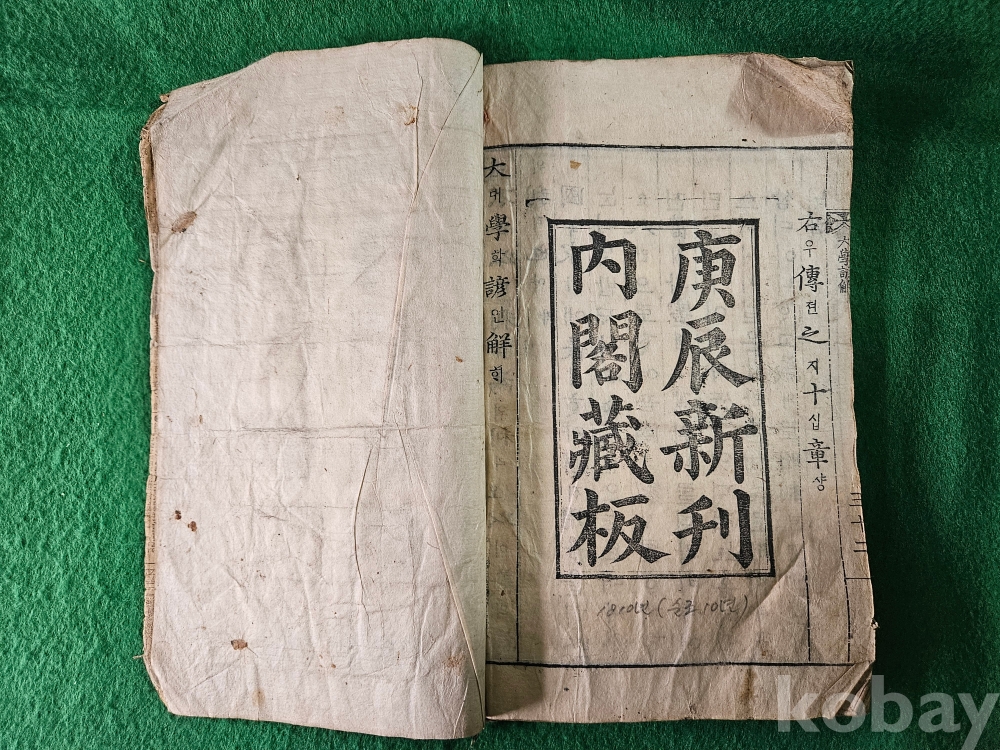 大學諺解
三十二
右우傳젼之지十십章쟝
庚辰新刊
內閣藏板
大대學학諺언解ᄒᆡ
1810년(순조10년)
kobay